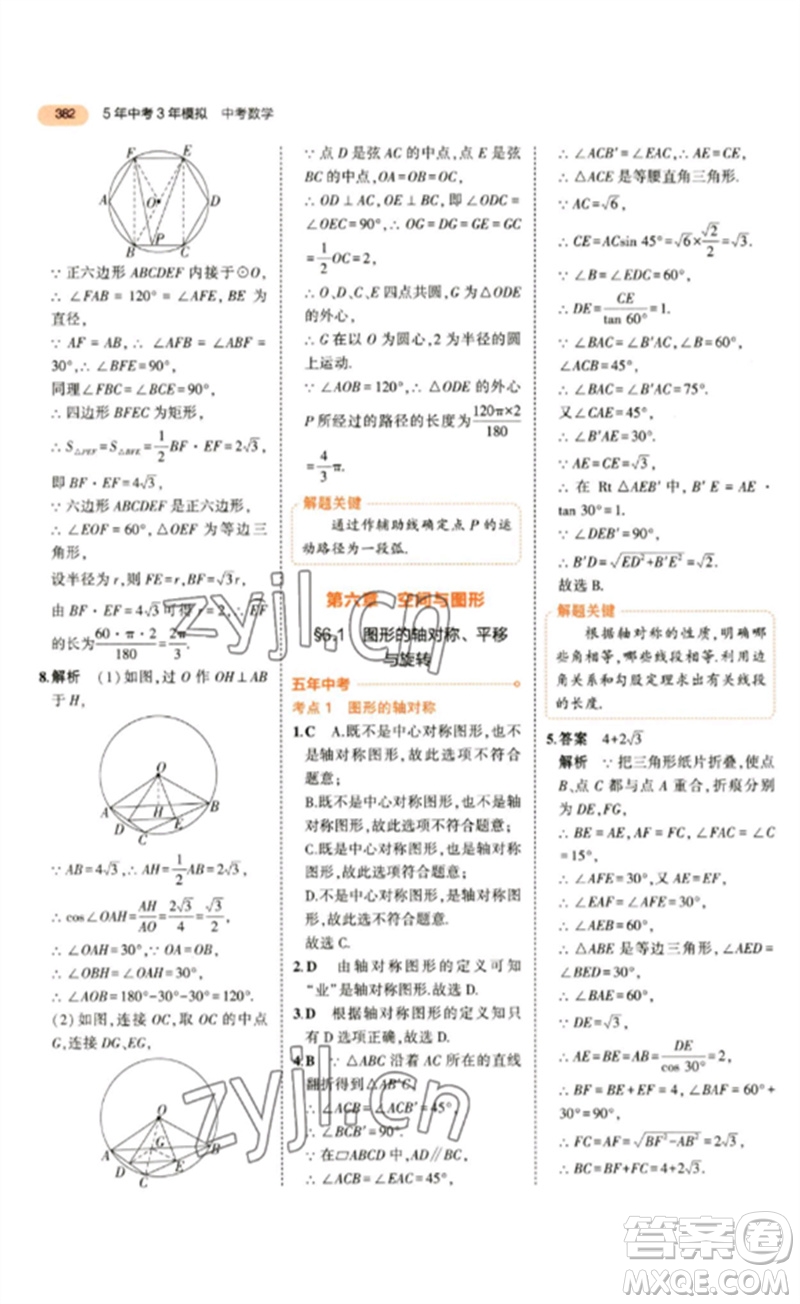 382 5年中考3年模拟 中考数学
F E
A O D
B P C
∵ 正六边形 ABCDEF 内接于⊙O,
∴ ∠FAB = 120° = ∠AFE, BE 为
直径,
∵ AF = AB, ∴ ∠AFB = ∠ABF =
30°, ∴ ∠BFE=90°,
同理∠FBC=∠BEC=90°,
∴ 四边形 BFEC 为矩形,
∴ S△PEF=S△BFE=1/2 BF·EF=2√3,
即 BF·EF=4√3,
∵ 六边形 ABCDEF 为正六边形,
∴ ∠EOF = 60°, △EOF 为等边三
角形,
设半径为 r, 则 FE=r, BF=√3 r,
由 BF·EF=4√3 可得 r=2, ∴ EF
的长为 60·π·2/180=2π/3.
8.解析 (1)如图,过 O 作 OH⊥AB
于 H,
O
A H B
D E
C
∵ AB=4√3, ∴ AH=1/2 AB=2√3,
∴ cos∠OAH=AH/AO=2√3/4=√3/2,
∴ ∠OAH=30°, ∵ OA=OB,
∴ ∠OBH=∠OAH=30°,
∴ ∠AOB=180°-30°-30°=120°.
(2)如图,连接 OC,取 OC 的中点
G,连接 DG,EG,
O
A G B
D E
C
∵ 点 D 是弦 AC 的中点,点 E 是弦
BC 的中点,OA=OB=OC,
∴ OD⊥AC, OE⊥BC, 即∠ODC=
∠OEC=90°, ∴ OG=DG=GE=GC
=1/2 OC=2,
∴ O、D、C、E 四点共圆,G 为△ODE
的外心,
∴ G 在以 O 为圆心,2 为半径的圆
上运动.
∵ ∠AOB=120°, ∴ △ODE 的外心
P 所经过的路径的长度为 120π×2/180
=4/3 π.
解题关键
通过作辅助线确定点 P 的运
动路径为一段弧.
第六章 空间与图形
§6.1 图形的轴对称、平移
与旋转
五年中考
考点1 图形的轴对称
1.C A.既不是中心对称图形,也不
是轴对称图形,故此选项不符合
题意;
B.既不是中心对称图形,也不是轴
对称图形,故此选项不符合题意;
C.既是中心对称图形,也是轴对称
图形,故此选项符合题意;
D.不是中心对称图形,是轴对称图
形,故此选项不符合题意.
故选 C.
2.D 由轴对称图形的定义可知
“业”是轴对称图形.故选 D.
3.D 根据轴对称图形的定义知只
有 D 选项正确,故选 D.
4.B ∵ △ABC 沿着 AC 所在的直线
翻折得到△AB'C,
∴ ∠ACB=∠ACB'=45°,
∴ ∠BCB'=90°.
∵ 在▱ABCD 中,AD∥BC,
∴ ∠ACB=∠EAC=45°,
∴ ∠ACB'=∠EAC, ∴ AE=CE,
∴ △ACE 是等腰直角三角形.
∵ AC=√6,
∴ CE=ACsin 45°=√6×√2/2=√3.
∵ ∠B=∠EDC=60°,
∴ DE=CE/tan 60°=1.
∵ ∠BAC=∠B'AC, ∠B=60°,
∠ACB=45°,
∴ ∠BAC=∠B'AC=75°.
又∠CAE=45°,
∴ ∠B'AE=30°.
∵ AE=CE=√3,
∴ 在 Rt△AEB'中,B'E=AE·
tan 30°=1.
∵ ∠DEB'=90°,
∴ B'D=√(DE²+B'E²)=√2.
故选 B.
解题关键
根据轴对称的性质,明确哪
些角相等,哪些线段相等,利用
边角关系和勾股定理求出有关线段
的长度.
5.答案 4+2√3
解析 ∵ 把三角形纸片折叠,使点
B、点 C 都与点 A 重合,折痕分别
为 DE,FG,
∴ BE=AE, AF=FC, ∠FAC=∠C
=15°,
∴ ∠AFE=30°,又 AE=EF,
∴ ∠EAF=∠AFE=30°,
∴ ∠AEB=60°,
∴ △ABE 是等边三角形,∠AED=
∠BED=30°,
∴ ∠BAE=60°,
∵ DE=√3,
∴ AE=BE=AB=DE/cos 30°=2,
∴ BF=BE+EF=4, ∠BAF=60°+
30°=90°,
∴ FC=AF=√(BF²-AB²)=2√3,
∴ BC=BF+FC=4+2√3.
zyjl.cn
zyjl.cn
答案圈
MXQE.COM